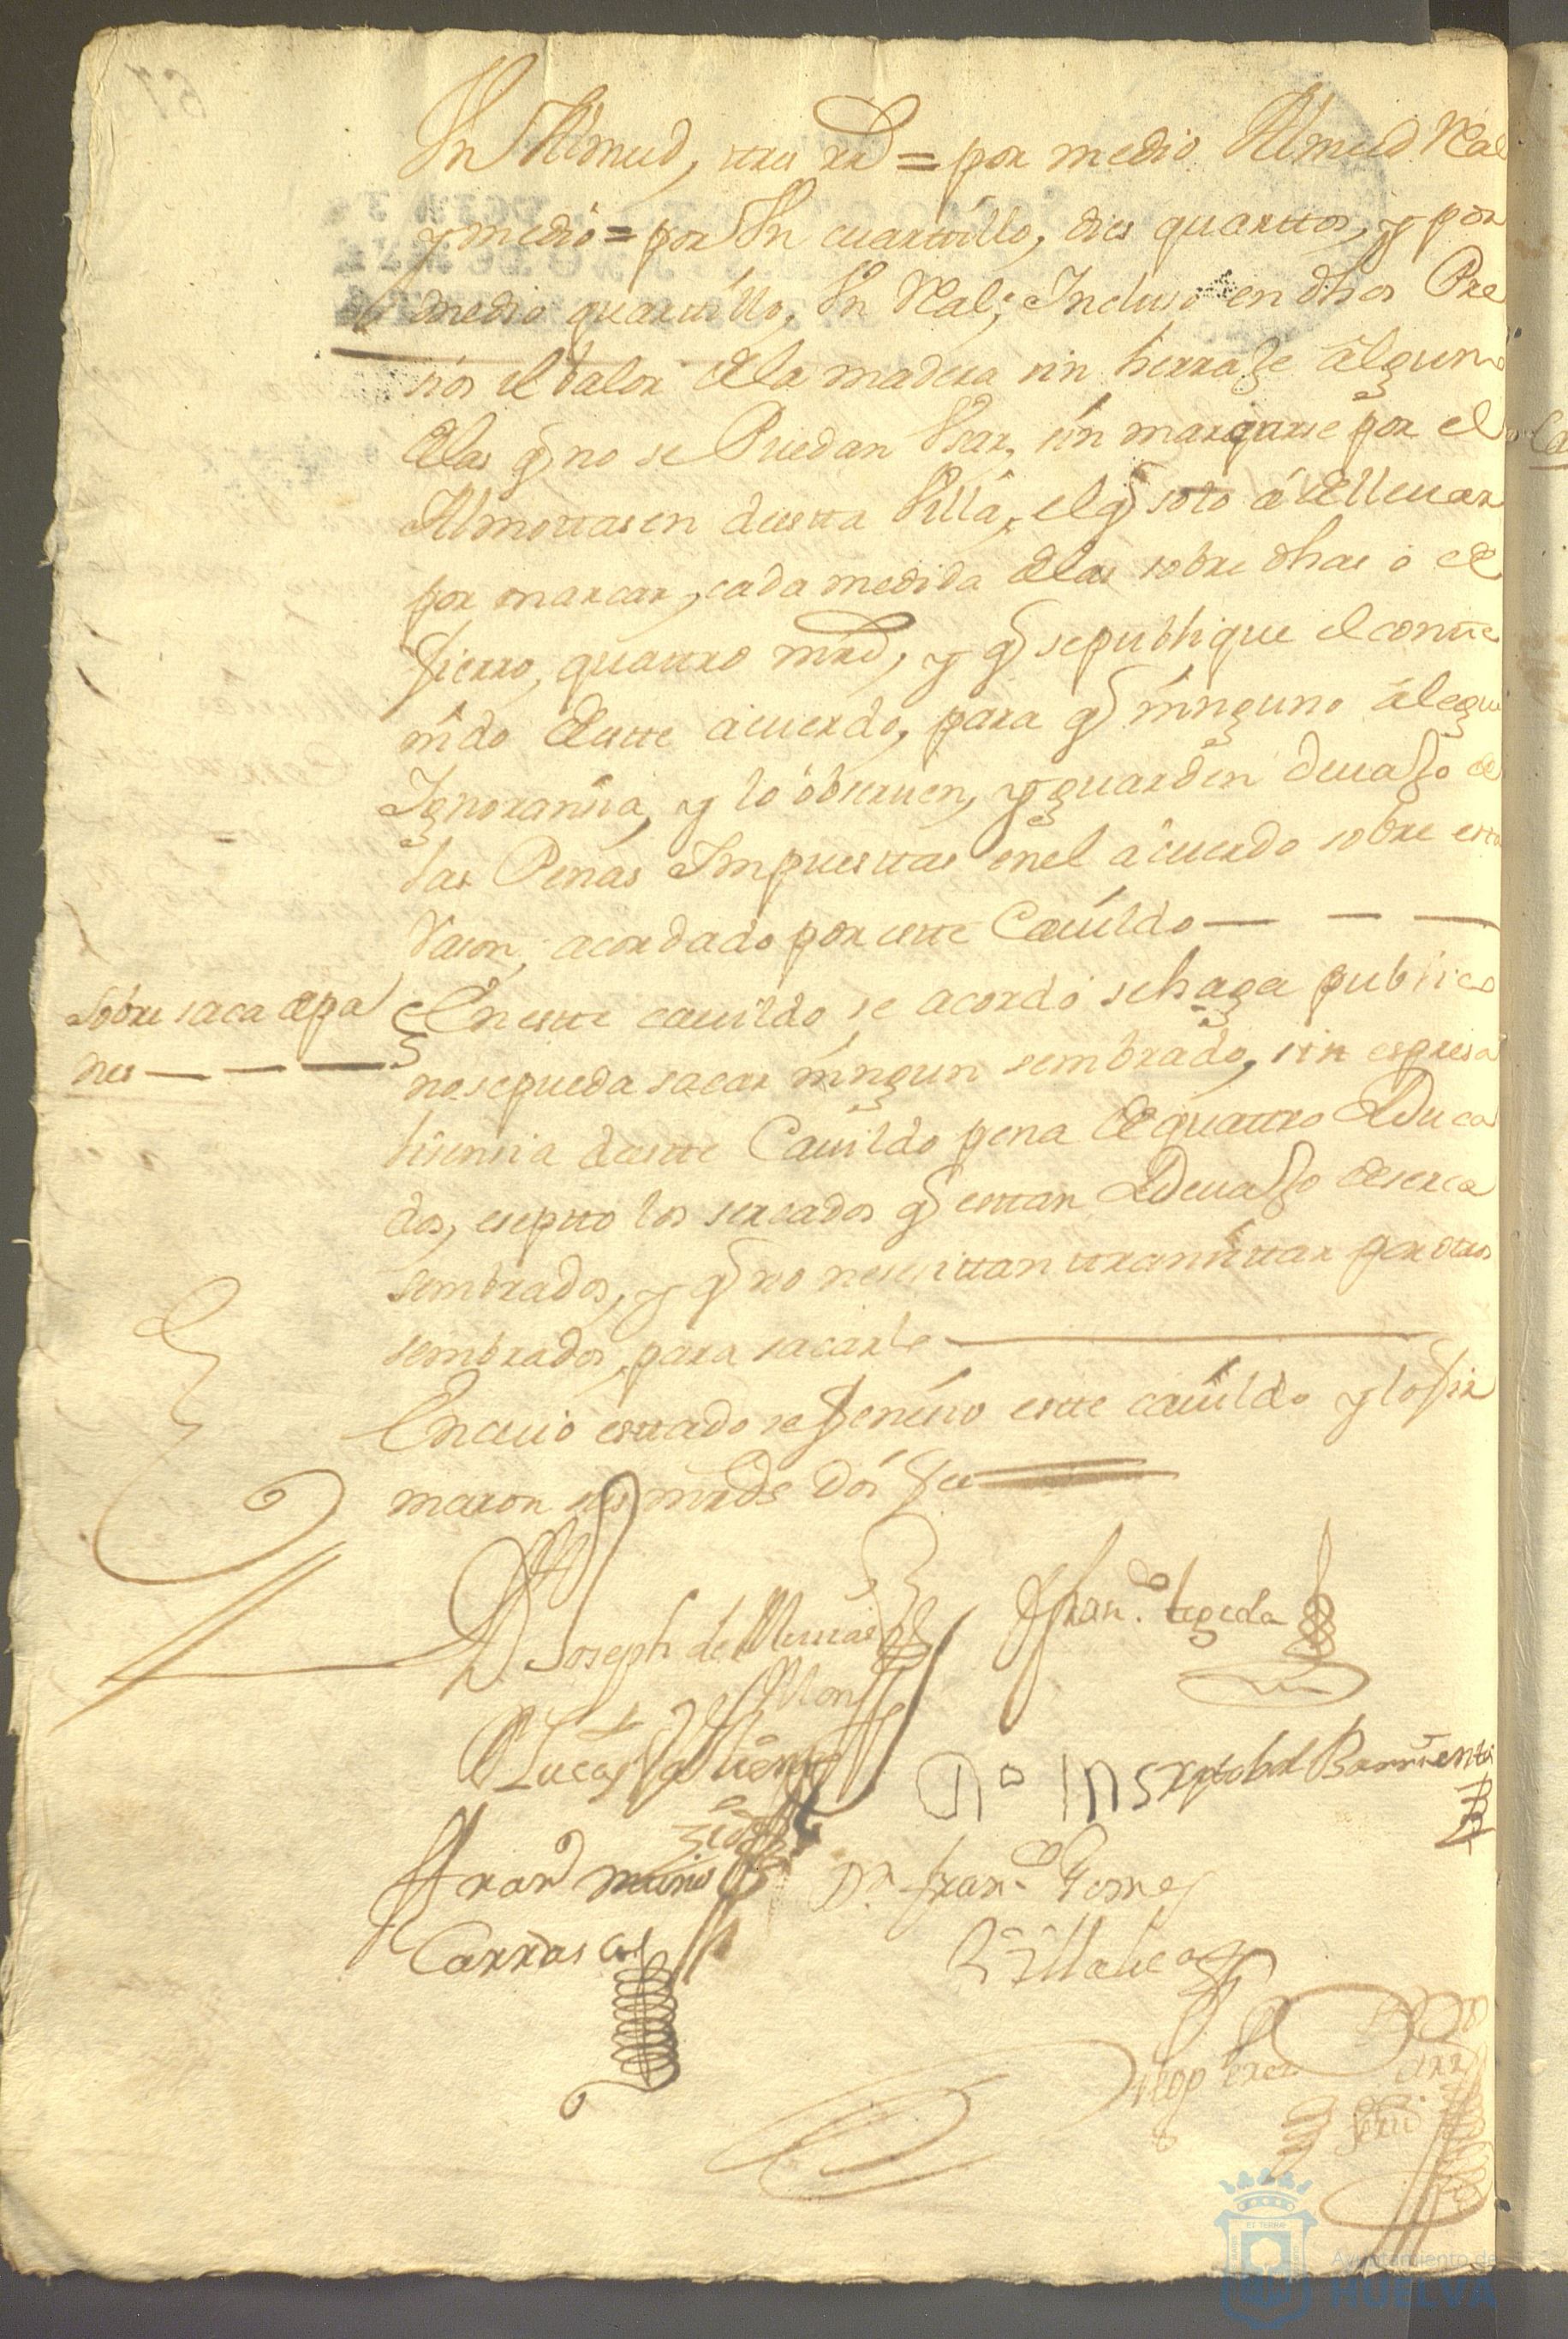 Un Almud, ttres rrs = por medio Almud Real
y medio = por Un cuarttillo, dies quarttos, y por
medio quarttillo, Un Real; Incluso en dhos Pre
sios el balor de la madera sin herraje álguno
de las q no se Puedan Usar, sin marqarse por el
Almottasen de estta Villa, el q solo á de lleuar
por marcar, cada medida de las sobre dhas o de
fierro, quattro mrs, y q se publique el contte
nido de estte acuerdo, para q ninguno álegue
Ygnoransia, y lo obseruen, y guarden deuajo de
las Penas Ympuesttas en el ácuerdo sobre estta
Rason, acordado por estte Cauildo — — —
Sobre saca de pa
nes — — —
En estte cauildo se acordó se haga publico
no se pueda sacar ningun sembrado, sin espresa
lisensia de estte Cauildo pena de quattro Duca
dos, eseptto los sercados q esttan Deuajo de serca
sembrados, y q no nesesittan ttransittar por otros
sembrados, para sacarlo —
En cuio esttado se fenesio estte cauildo y lo fir
maron sus mrds Doi fee
Dn Joseph de
Franco tejeda
Lucas
Xptobal Barrientos
Franco munis
Carrasco
Dn franco Gomes
Ayuntamiento de
HUELVA